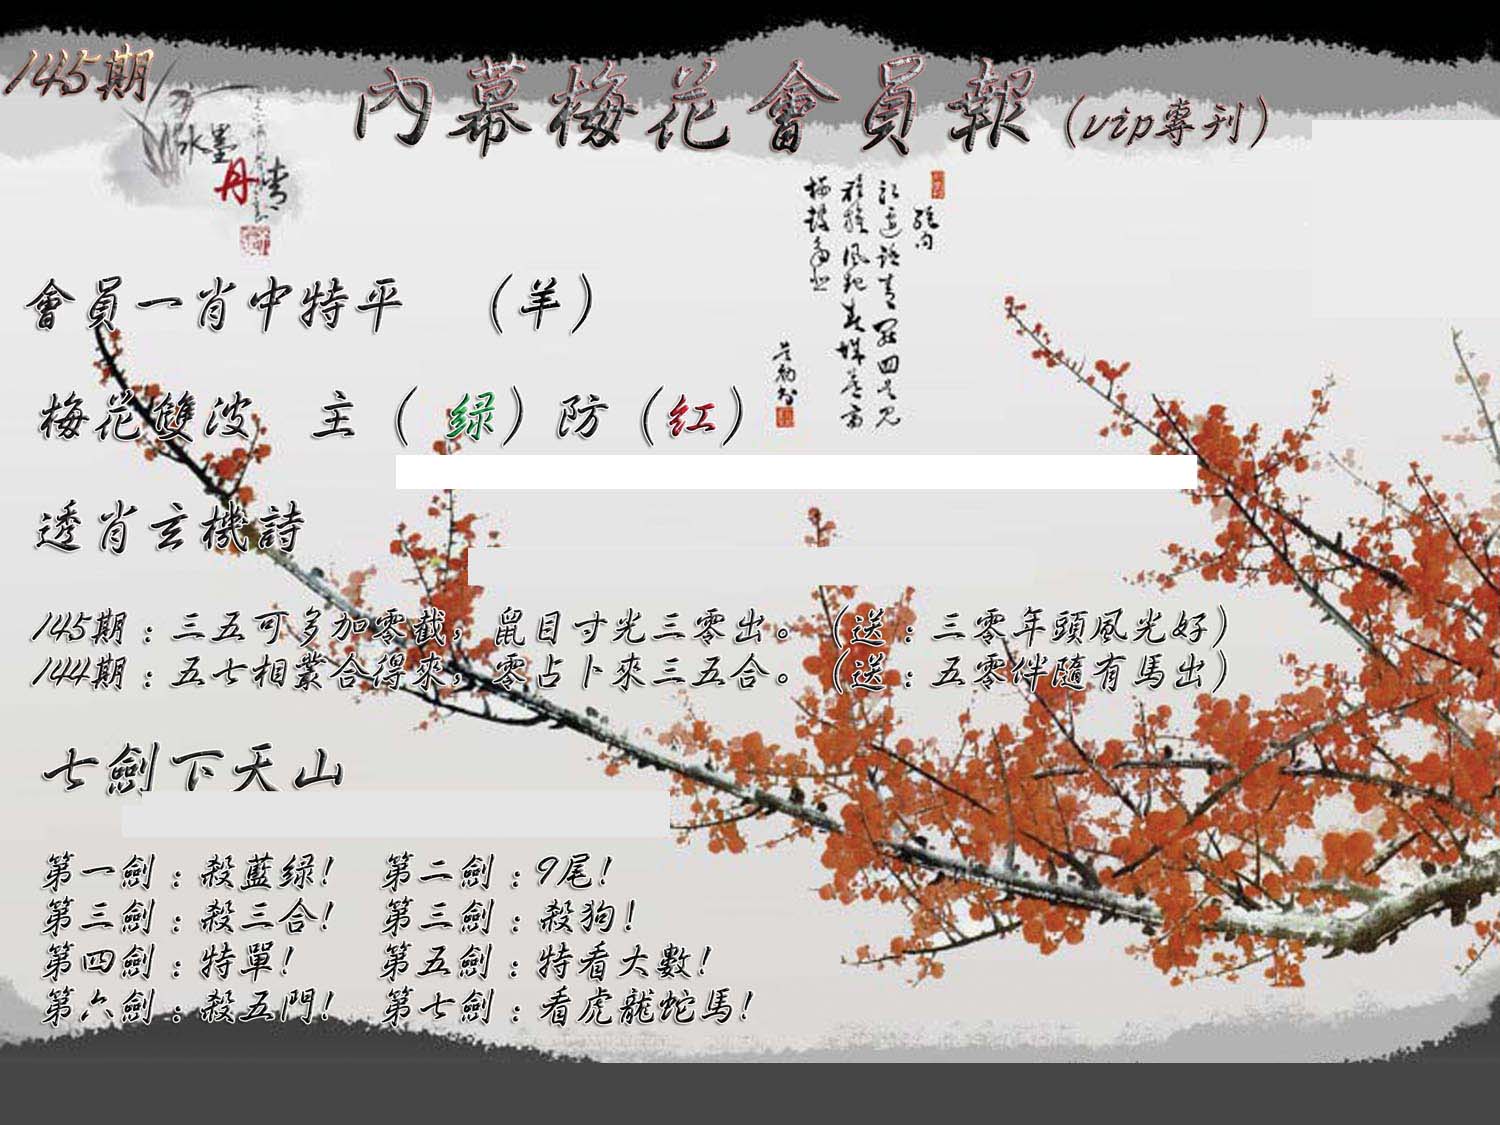 145期
內幕梅花會員報（vip專刊）
水墨
丹青
會員一肖中特平　（羊）
梅花雙波　主（绿）防（红）
透肖玄機詩
145期：三五可多加零截，鼠目寸光三零出。（送：三零年頭風光好）
144期：五七相叢合得來，零占卜來三五合。（送：五零伴隨有馬出）
七劍下天山
第一劍：殺藍绿!　第二劍：9尾!
第三劍：殺三合!　第三劍：殺狗!
第四劍：特單!　第五劍：特看大數!
第六劍：殺五門!　第七劍：看虎龍蛇馬!